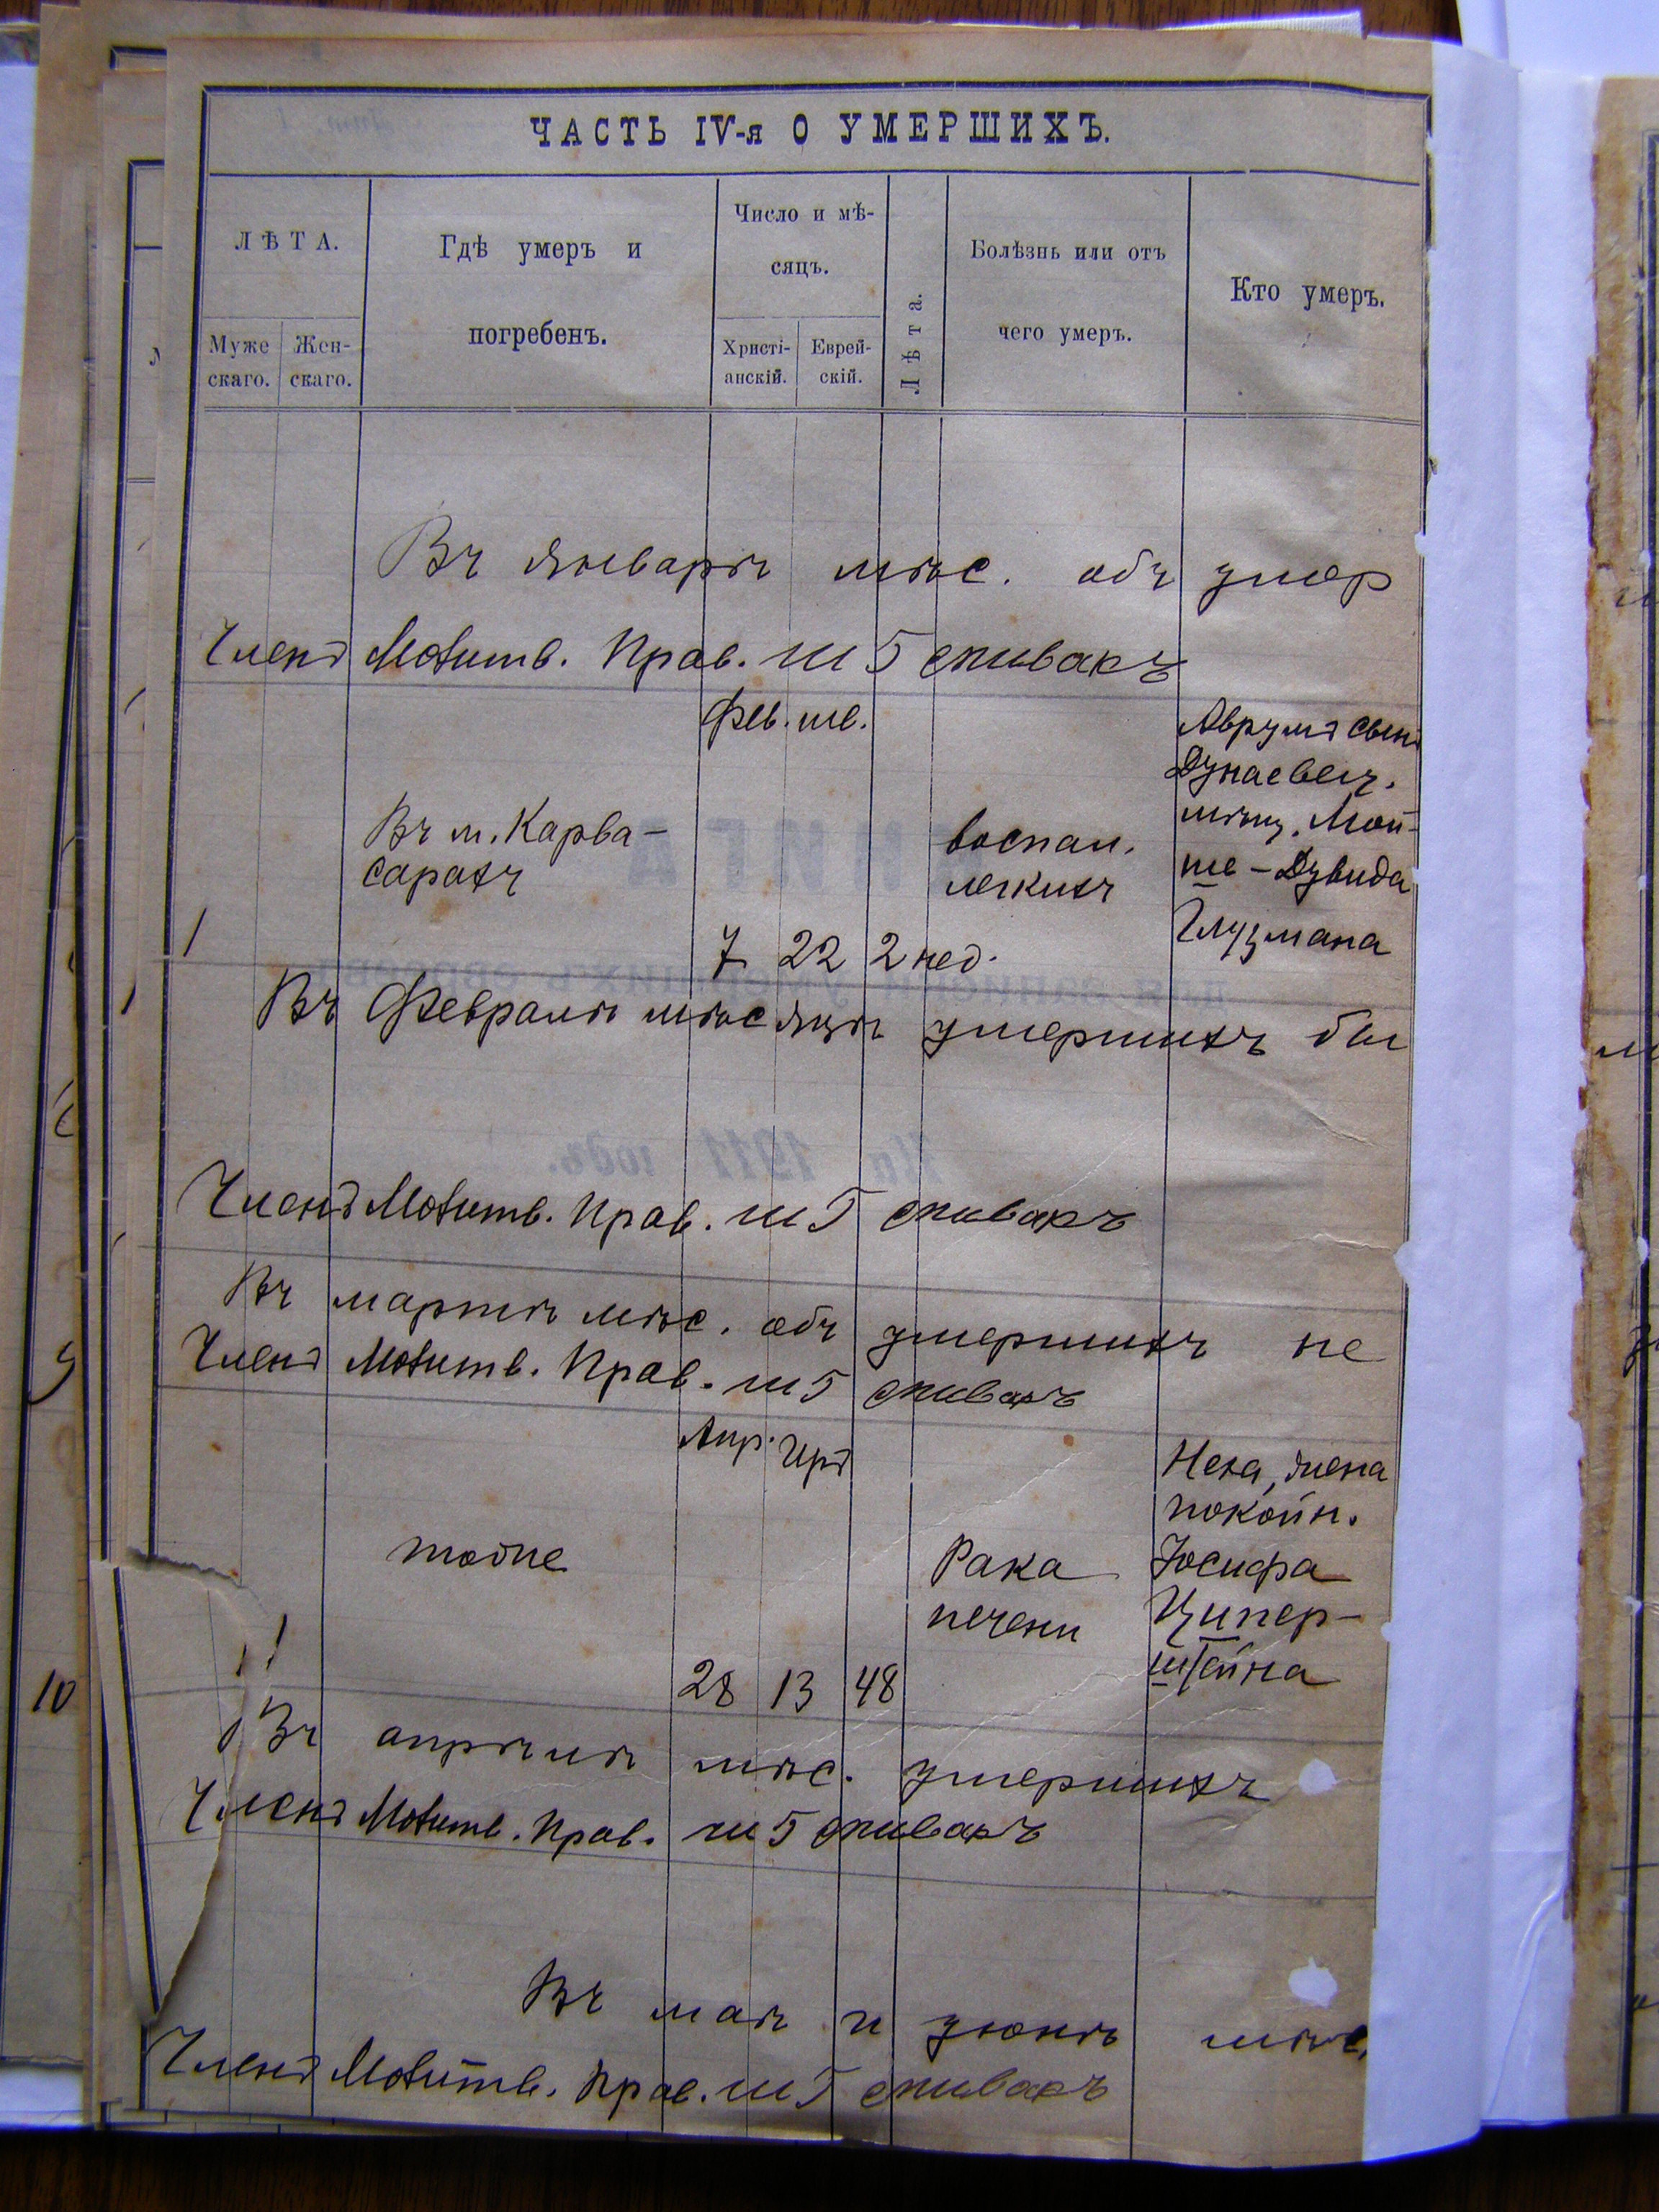 ЧАСТЬ IV-я О УМЕРШИХЪ.
ЛѢТА.
Муже скаго.
Жен- скаго.
Гдѣ умеръ и
погребенъ.
Число и мѣ-
сяцъ.
Христі- анскій.
Еврей- скій.
Лѣта.
Болѣзнь или отъ
чего умеръ.
Кто умеръ.
Въ январѣ мѣс. объ умер
Членъ Молитв. Прав. Ш Б Спивакъ
Фев. ше.
Аврумъ сынъ
Дунаевец.
мѣщ. Мой-
ше-Дувида
Глузмана
Въ м. Карва-
сарахъ
воспал.
легкихъ
1
7 22 2 нед.
Въ Февралѣ мѣсяцѣ умершихъ бы
Членъ Молитв. Прав. Ш Б Спивакъ
Въ мартѣ мѣс. объ умершихъ не
Членъ Молитв. Прав. Ш Б Спивакъ
Апр. Иръ
жена
покойн.
Іосифа
Ципер-
штейна
тоже
Рака
печени
28 13 48
Въ апрѣлѣ мѣс. умершихъ
Членъ Молитв. Прав. Ш Б Спивакъ
Въ маѣ и іюнѣ мѣс.
Членъ Молитв. Прав. Ш Б Спивакъ
9
10